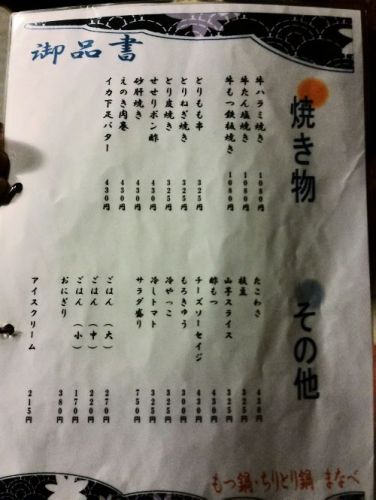 御品書
焼き物
牛ハラミ焼き 1080円
牛たん塩焼き 1080円
牛もつ鉄板焼き 1080円
とりもも串 325円
とりねぎ焼き 325円
とり皮焼き 325円
せせりポン酢 430円
砂肝焼き 430円
えのき肉巻 430円
イカ下足バター 430円
その他
たこわさ 430円
枝豆 325円
山芋スライス 325円
酢もつ 430円
チーズソーセイジ 430円
もろきゅう 300円
冷やっこ 325円
冷しトマト 325円
サラダ盛り 750円
ごはん（大） 270円
ごはん（中） 220円
ごはん（小） 170円
おにぎり 380円
アイスクリーム 215円
もつ鍋・ちりとり鍋 まなべ